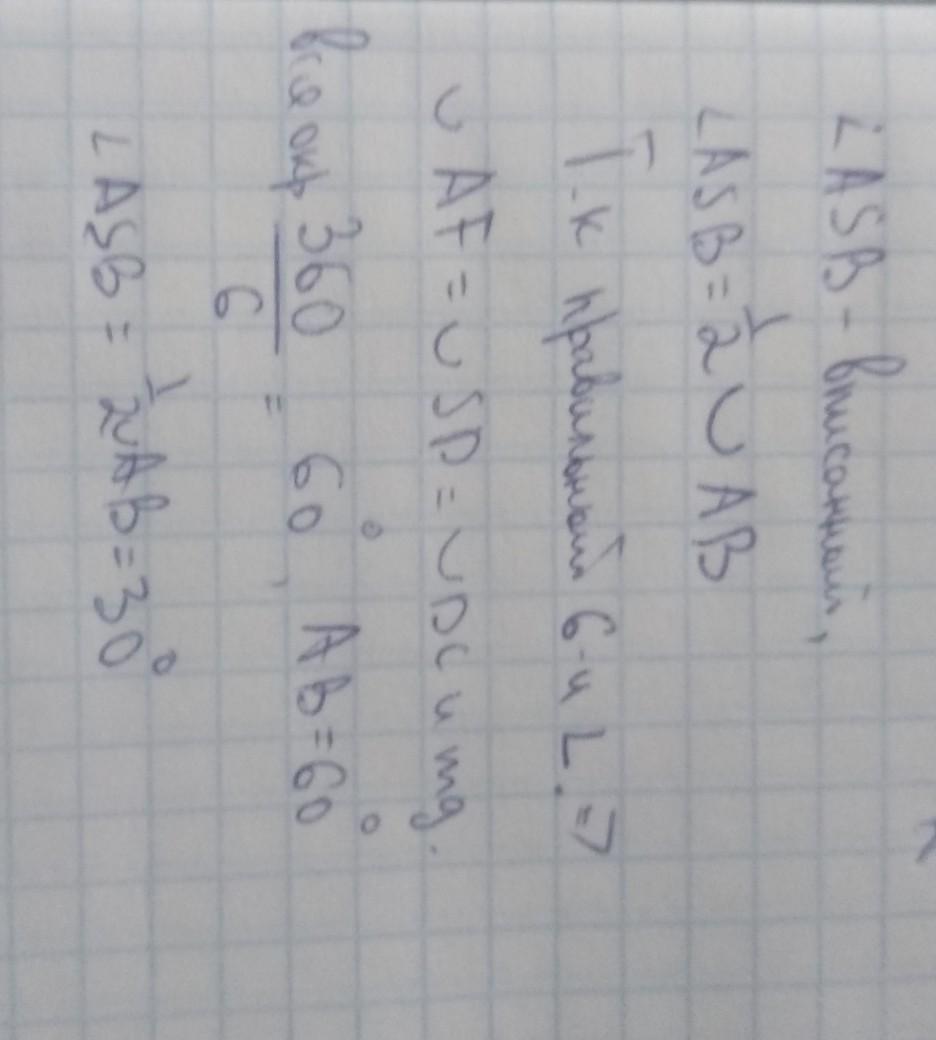 ∠ASB - вписанный,
∠ASB = 1/2 ◡ AB
Т.к правильный 6-и ∟. =>
◡ AF = ◡ SD = ◡ DC и тд.
вся окр 360/6 = 60°, AB = 60°
∠ASB = 1/2 ◡AB = 30°